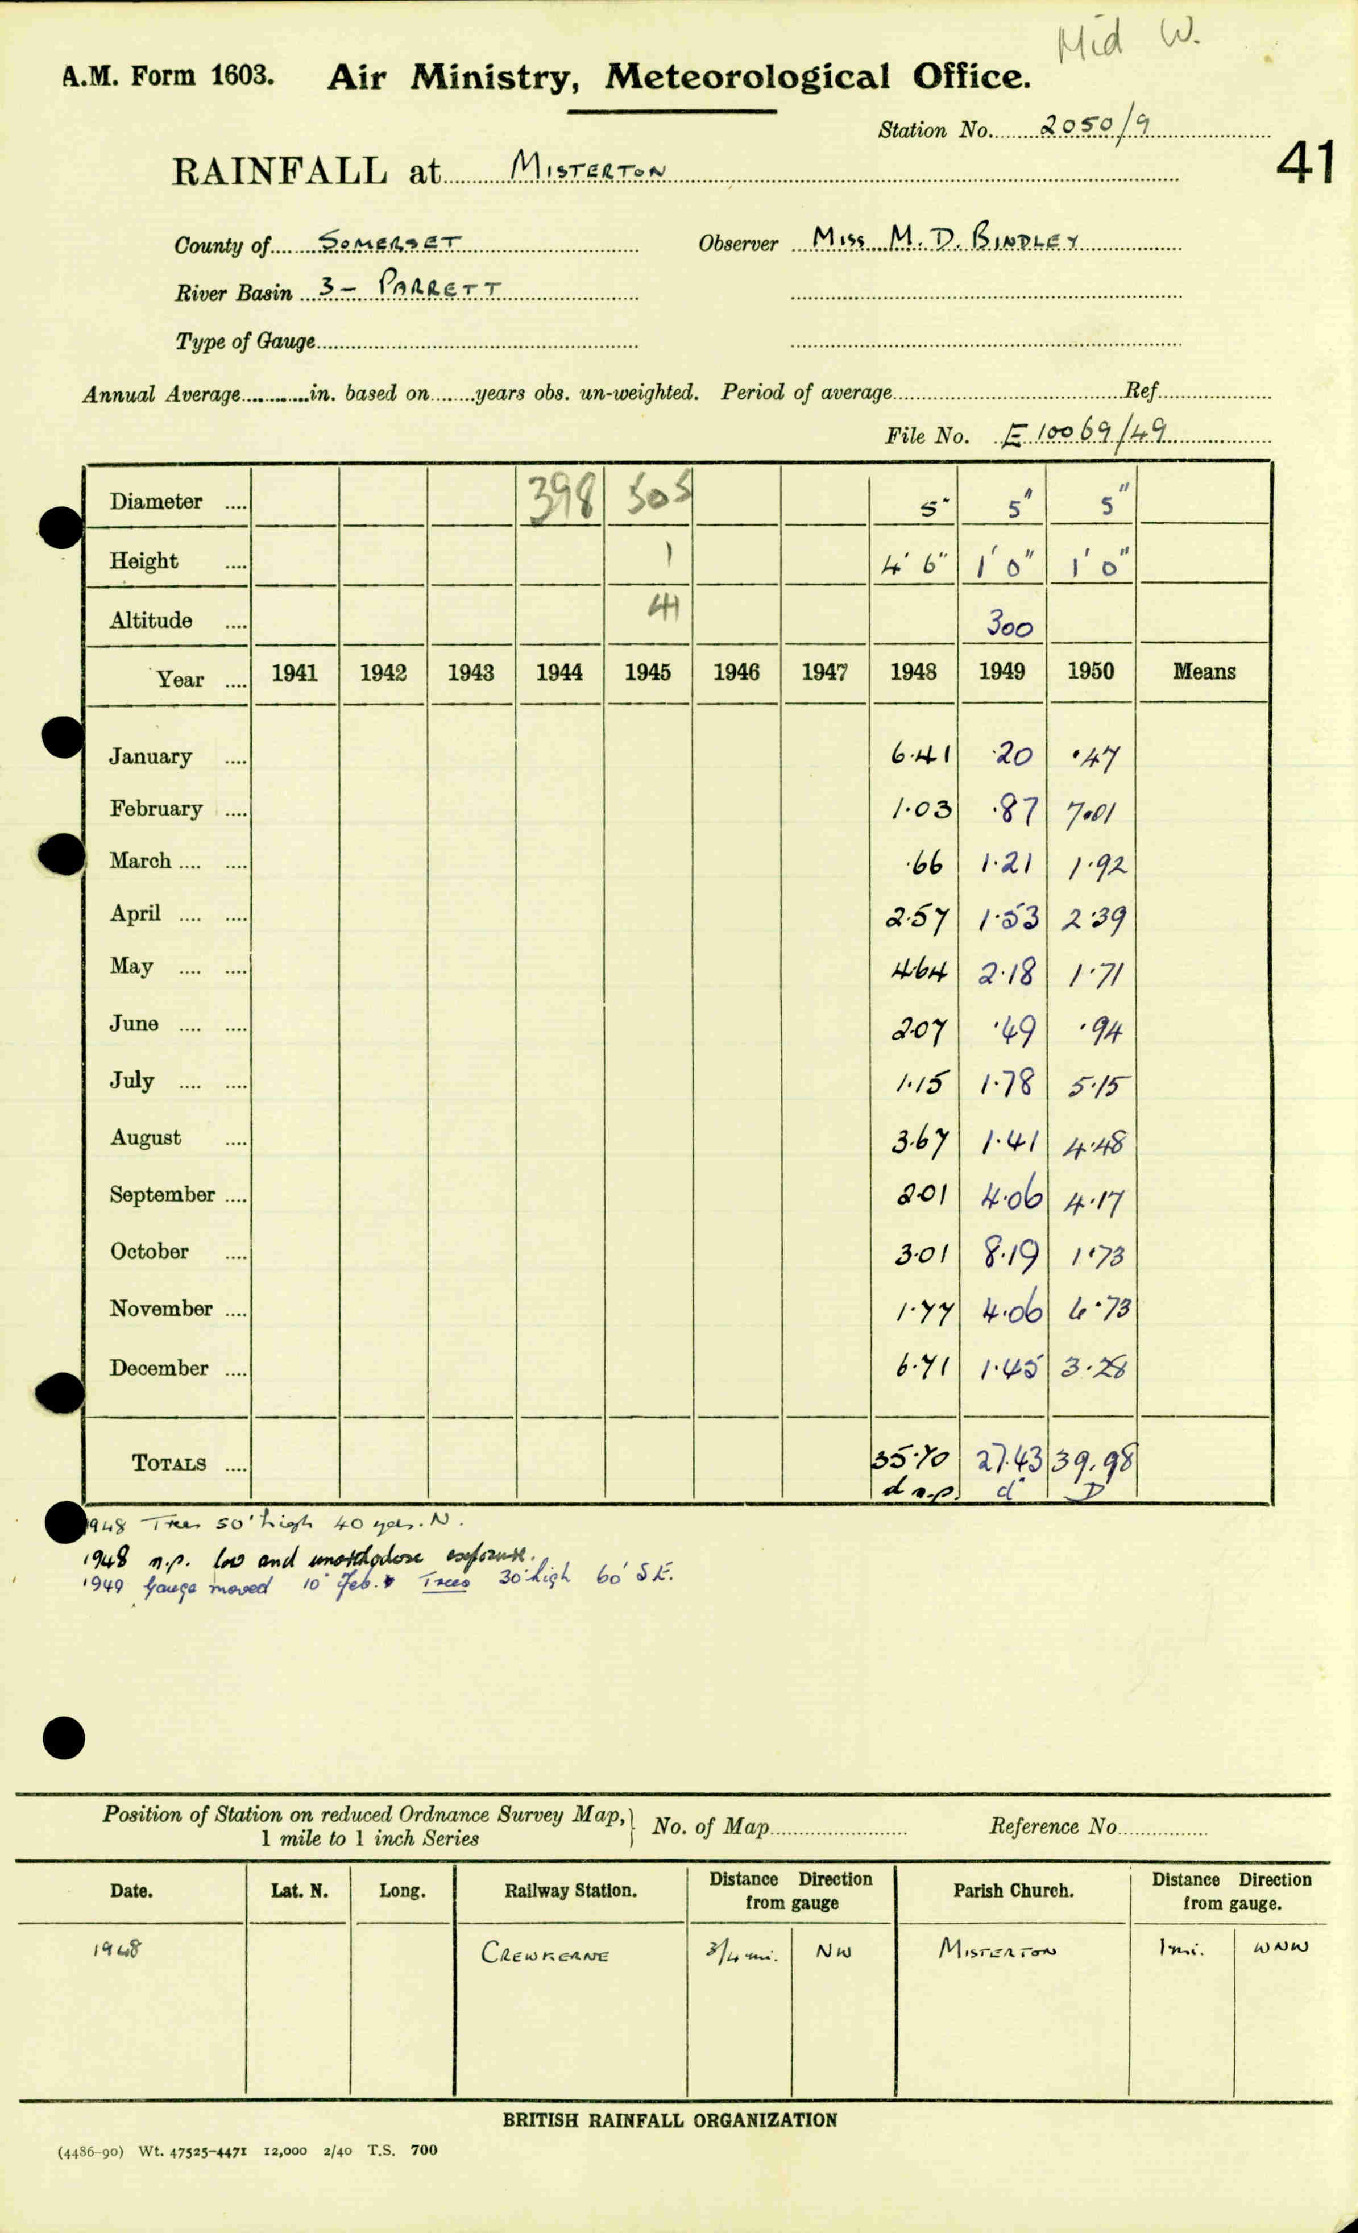 Mid W.
A.M. Form 1603. Air Ministry, Meteorological Office.
Station No. 2050/9
41
RAINFALL at MISTERTON
County of SOMERSET Observer MISS M. D. BINDLEY
River Basin 3 - PARRETT
Type of Gauge
Annual Average in. based on years obs. un-weighted. Period of average Ref.
File No. E 10069/49
Diameter 398 505 5" 5" 5"
Height 1 4' 6" 1' 0" 1' 0"
Altitude 41 300
Year 1941 1942 1943 1944 1945 1946 1947 1948 1949 1950 Means
January 6.41 .20 .47
February 1.03 .87 7.01
March .66 1.21 1.92
April 2.57 1.53 2.39
May 4.64 2.18 1.71
June 2.07 .49 .94
July 1.15 1.78 5.15
August 3.67 1.41 4.48
September 2.01 4.06 4.17
October 3.01 8.19 1.73
November 1.77 4.06 6.73
December 6.71 1.45 3.28
TOTALS 35.70 27.43 39.98
d n.p. d D
1948 Trees 50' high 40 yds. N.
1948 n.p. low and unorthodox exposure.
1949 Gauge moved 10 Feb. Trees 30' high 60' S E.
Position of Station on reduced Ordnance Survey Map, 1 mile to 1 inch Series No. of Map Reference No.
Date. Lat. N. Long. Railway Station. Distance Direction from gauge Parish Church. Distance Direction from gauge.
1948 CREWKERNE 3/4 mi. NW MISTERTON 1 mi. WNW
BRITISH RAINFALL ORGANIZATION
(4486-90) Wt. 47525-4471 12,000 2/40 T.S. 700